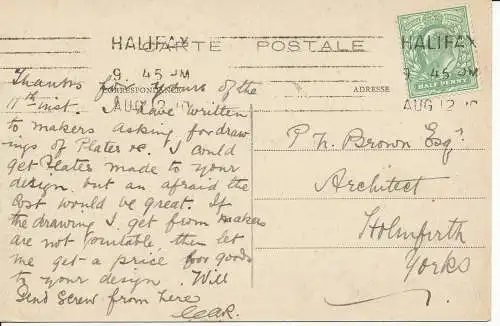 CARTE POSTALE
HALIFAX
9 45 PM
AUG 12 10
HALIFAX
9 45 PM
AUG 12 10
HALF PENNY
CORRESPONDENCE
ADRESSE
Thanks for yours of the
11th inst. I have written
to makers asking for draw
ings of Plates &c. I could
get Plates made to your
design but am afraid the
Cost would be great. If
the drawing I get from makers
are not suitable, then let
me get a price for goods
to your design. Will
Send Screw from here
P. N. Brown Esqr
Architect
Holmfirth
Yorks